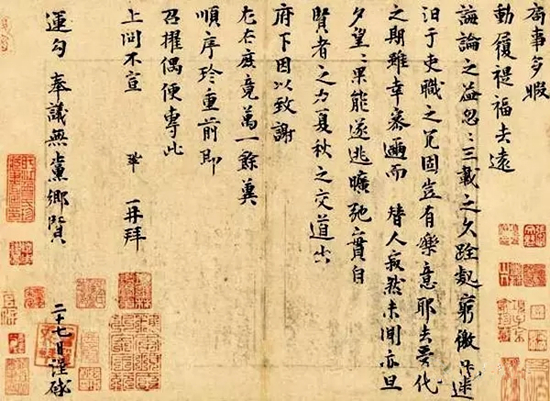 局事多暇
動履禔福去遠
誨論之益忽忽三載之久跧處窮徼日迷
汩于吏職之冗固豈有樂意耶去受代
之期雖幸密邇而替人寂然未聞亦旦
夕望望果能遂逃曠弛實自
賢者之力夏秋之交道出
府下因以致謝
左右庶竟萬一餘冀
順序珍重前即
召擢偶便專此
上問不宣 鞏 再拜
運勾奉議無黨鄉賢
二十七日謹啟